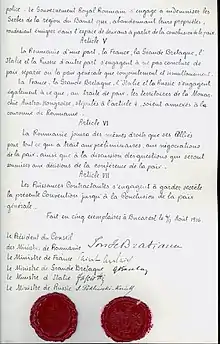 police. Le Gouvernement Royal Roumain s'engage à indemniser les
Serbes de la région du Banat qui, abandonnant leurs propriétés,
voudraient émigrer dans l'espace de deux ans à partir de la conclusion de la paix.
Article V
La Roumanie d'une part, la France, la Grande Bretagne, l'
Italie et la Russie d'autre part s'engagent à ne pas conclure de
paix séparée ou la paix générale que conjointement et simultanément.
La France, la Grande Bretagne, l'Italie et la Russie s'engagent
également à ce que, au traité de paix, les territoires de la Monar-
chie Austro-Hongroise, stipulés à l'article 4, soient annexés à la
couronne de Roumanie.
Article VI
La Roumanie jouira des mêmes droits que ses Alliés
pour tout ce qui a trait aux préliminaires, aux négociations
de la paix, ainsi qu'à la discussion des questions qui seront
soumises aux décisions de la conférence de la paix.
Article VII
Les Puissances Contractantes s'engagent à garder secrète
la présente Convention jusqu'à la conclusion de la paix
générale.
Fait en cinq exemplaires à Bucarest le 4/17 Août 1916
Le Président du Conseil
des Ministres de Roumanie
Le Ministre de France
Le Ministre de Grande Bretagne
Le Ministre d'Italie
Le Ministre de Russie